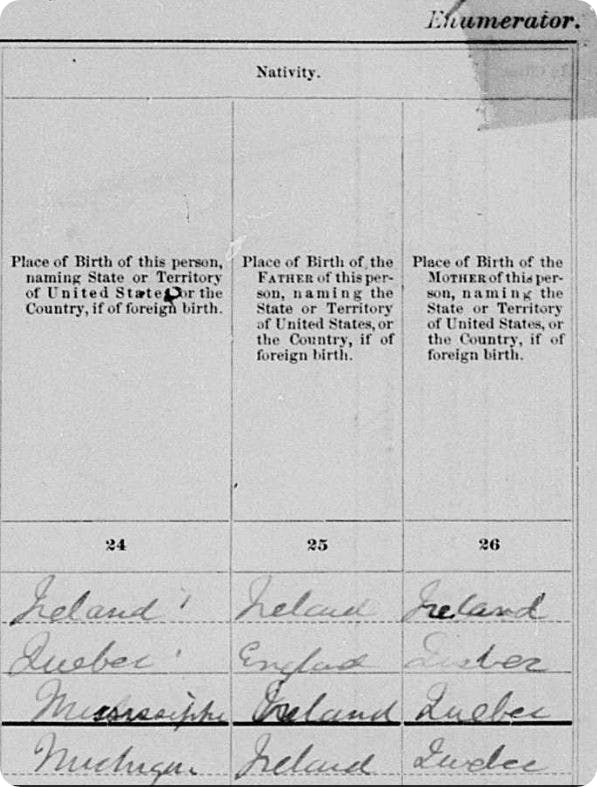 Enumerator.
Nativity.
Place of Birth of this person,
naming State or Territory
of United States, or the
Country, if of foreign birth.
Place of Birth of the
FATHER of this per-
son, naming the
State or Territory
of United States, or
the Country, if of
foreign birth.
Place of Birth of the
MOTHER of this per-
son, naming the
State or Territory
of United States, or
the Country, if of
foreign birth.
24 25 26
Ireland Ireland Ireland
Quebec England Quebec
Mississippi Ireland Quebec
Michigan Ireland Quebec